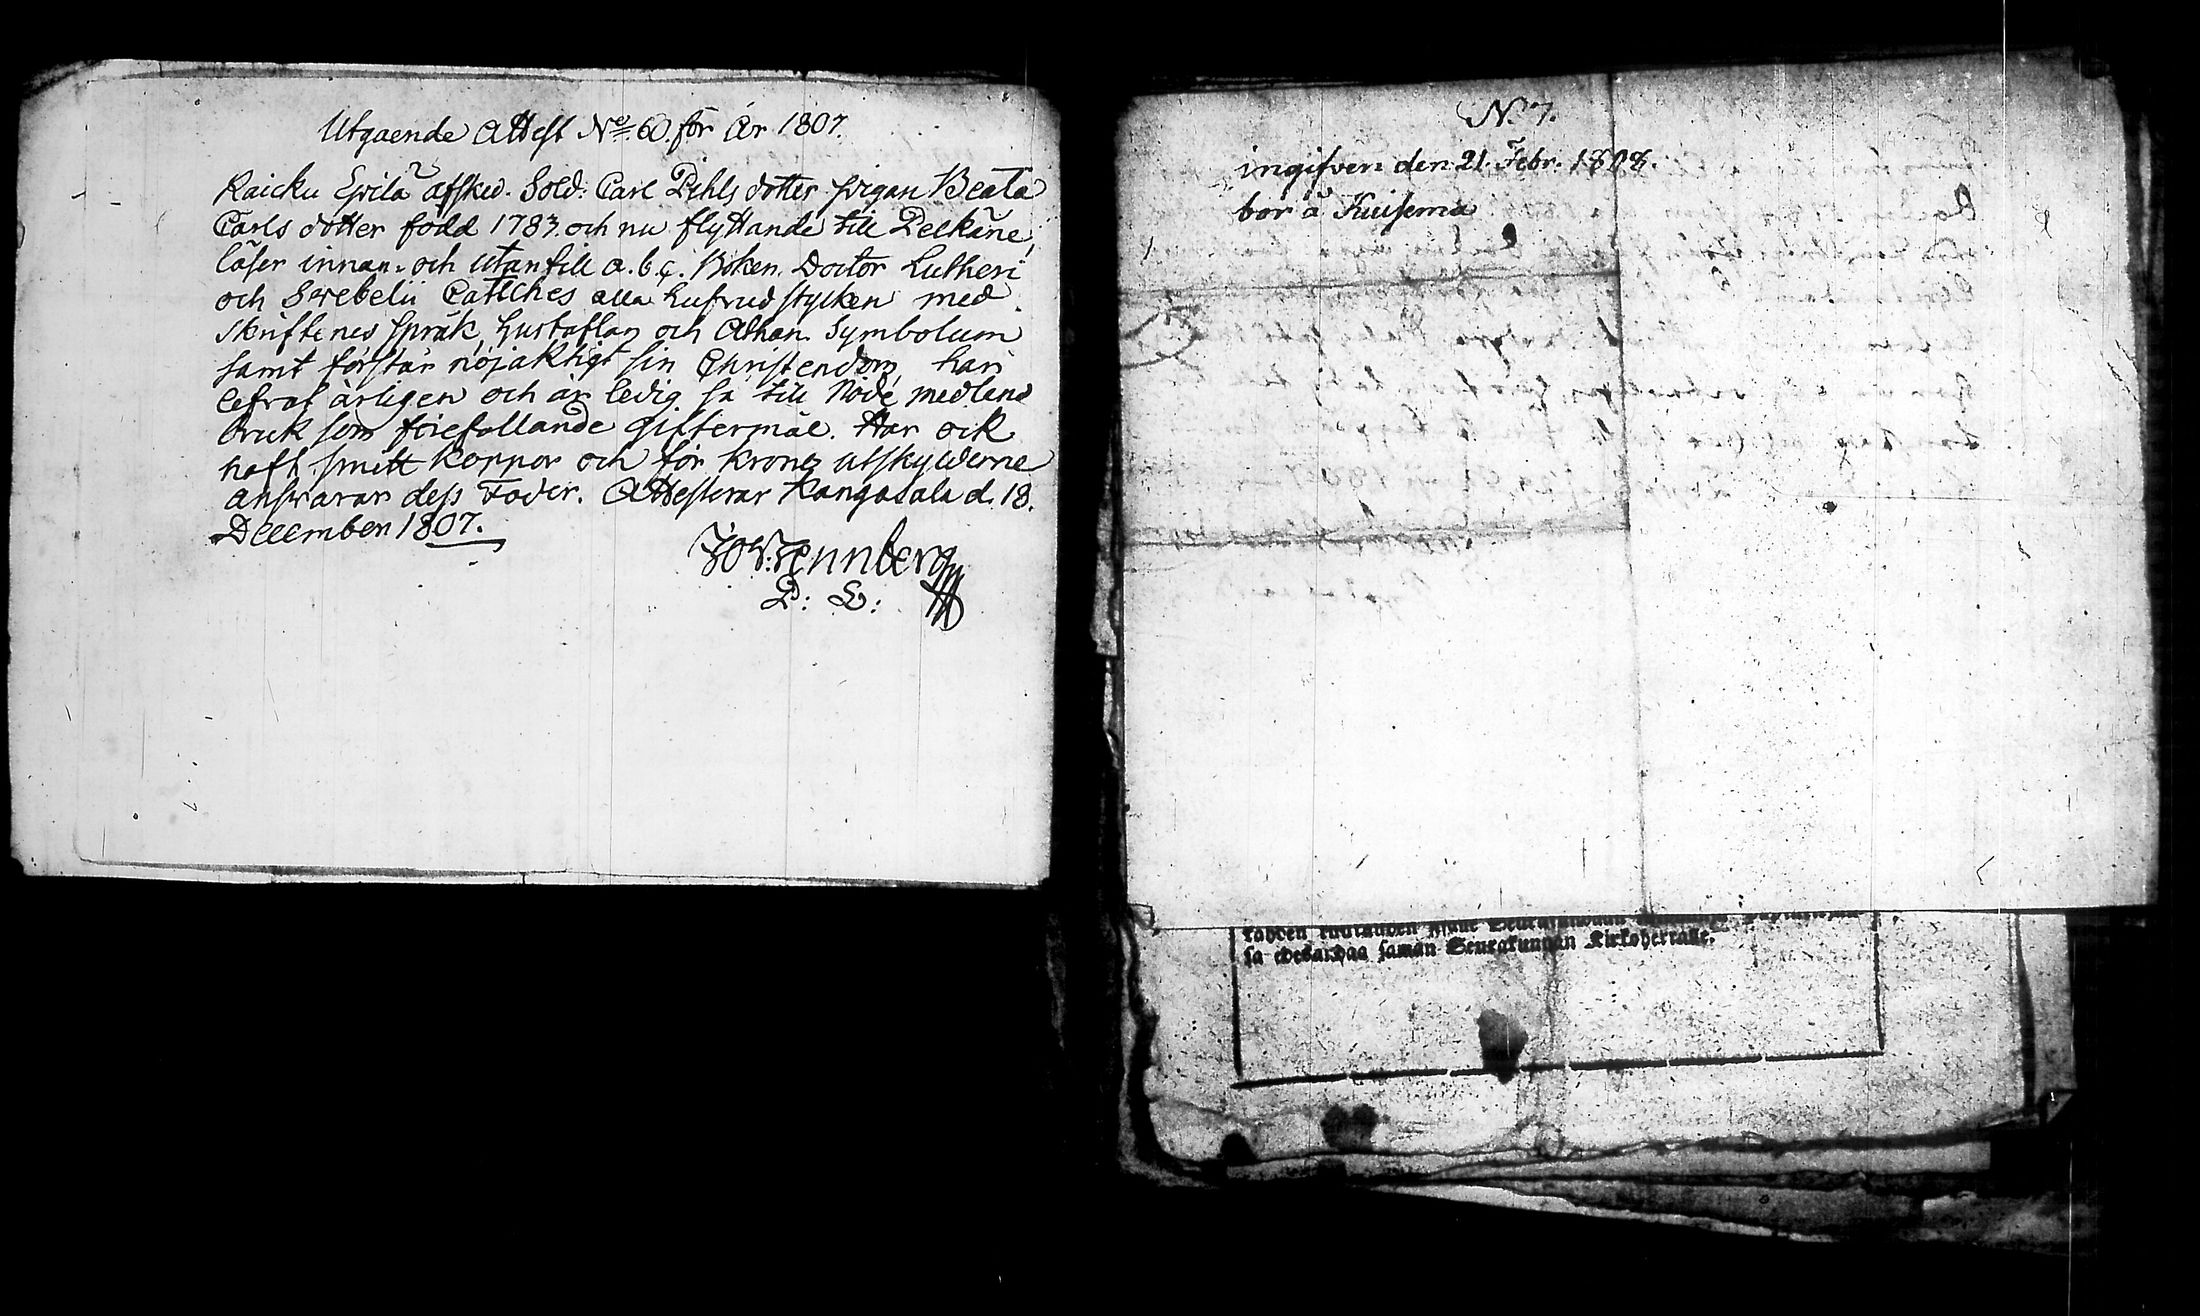 Utgaende Attest No 60. för År 1807.
Raicku Eerila afsked. Sold. Carl Pihls dotter Pigan Beata
Carls dotter född 1783. och nu flyttande till Pelkäne,
läser innan- och utantill a.b.c. Boken, Doctor Lutheri
och Swebelii Catches alla hufvudstycken med
Skriftenes språk, hustaflan och Athan. Symbolum
samt förstår nöjaktigt sin Christendom, har
lefvat ärligen och är ledig så till Nödv. medlens
bruk som förefallande giftermål. Har ock
haft smitt koppor och för krono utskylderne
answarar dess Fader. Attesterar Kangasala d. 18.
December 1807.
Wennberg
P: L:
N. 7.
ingifven den 21. Febr. 1808.
bor å Kuisema
sa edesandaa saman Seurakunnan Kirkoherralle.